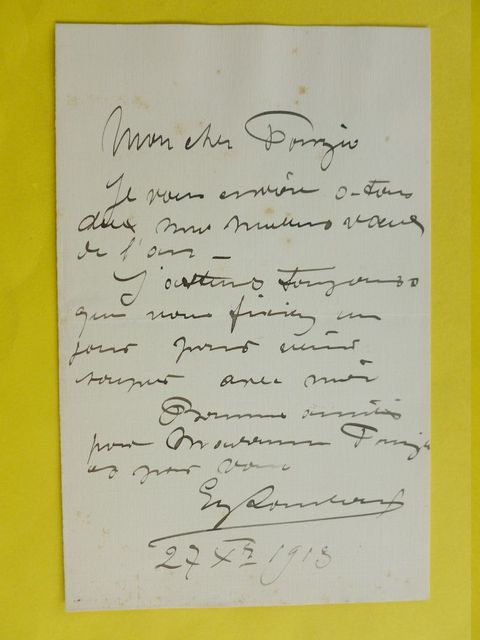 Mon cher
Je vous envoie à tous
deux mes meilleurs vœux
de l'an —
J'attends toujours
que vous fixiez un
jour pour venir
souper avec moi
Bonnes amitiés
pour Madame
et pour vous
27 Xre 1913